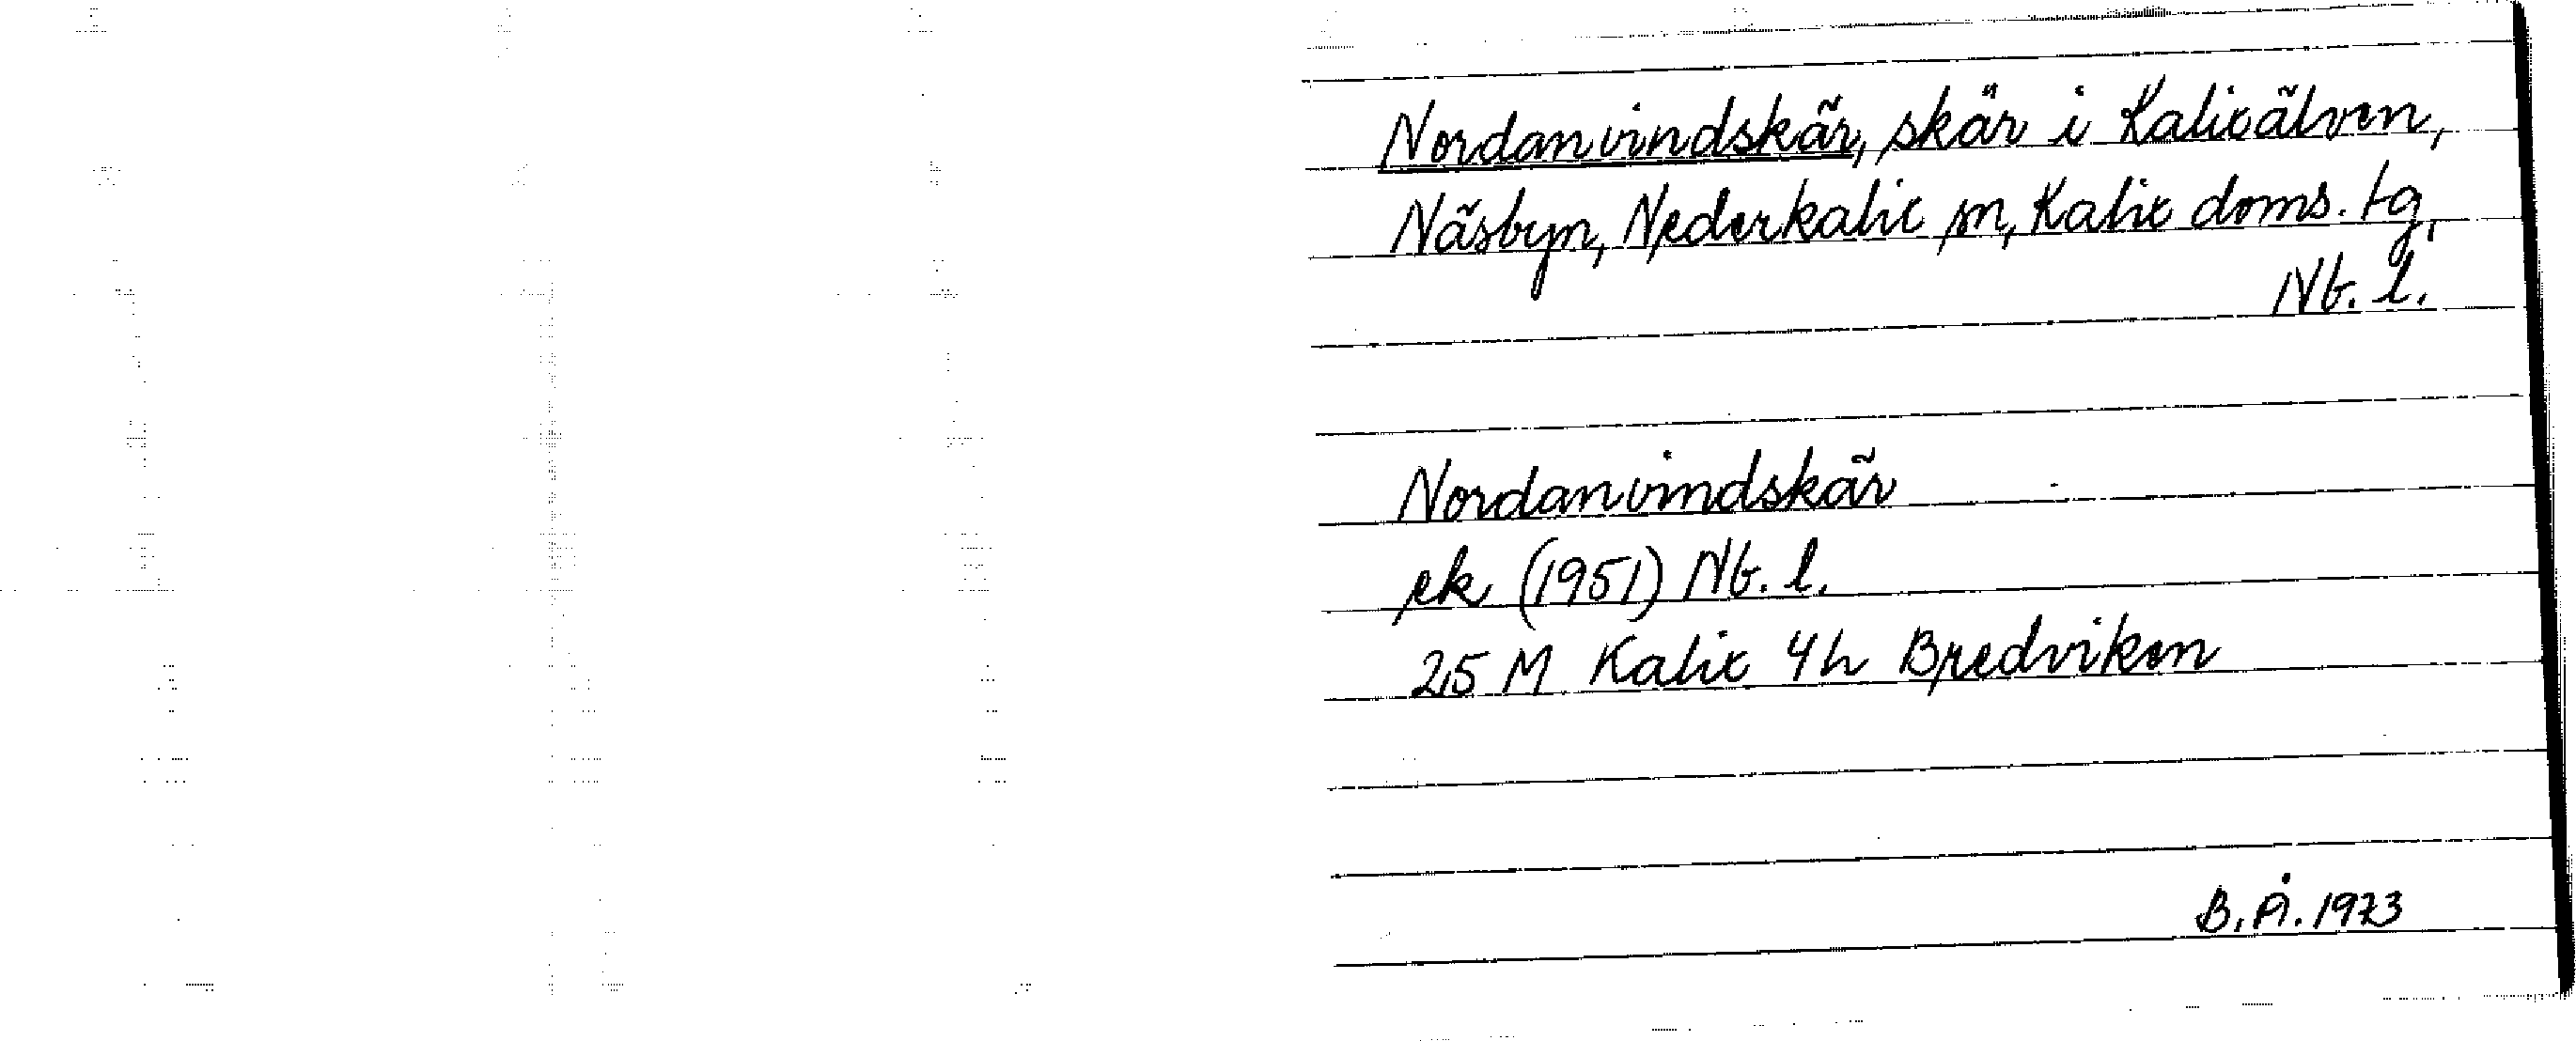 Nordanvindskär, skär i Kalixälven,
Näsbyn, Nederkalix sn, Kalix doms. tg,
Nb. l.
Nordanvindskär
ek (1951) Nb. l.
25 M Kalix 4h Bredviken
B. Å. 1973